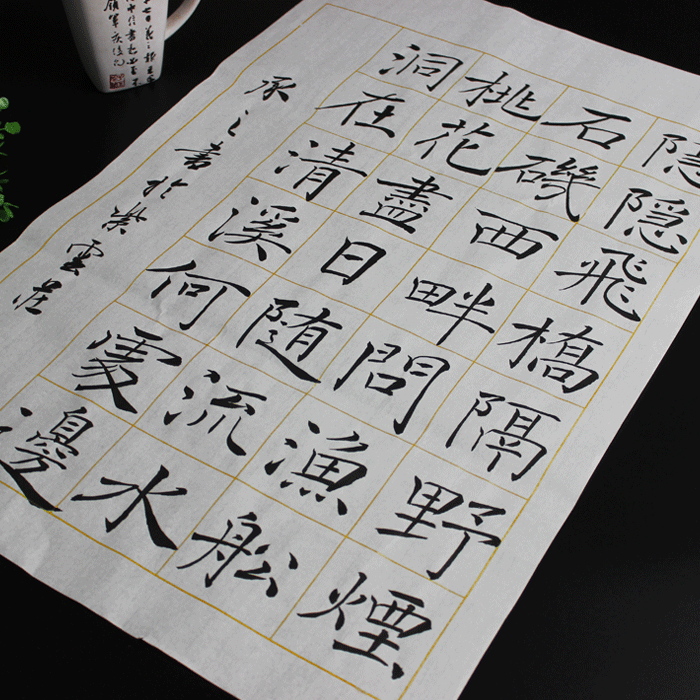 隱隱飛橋隔野煙
石磯西畔問漁舩
桃花盡日随流水
洞在清溪何處邊
承之書於紫雲